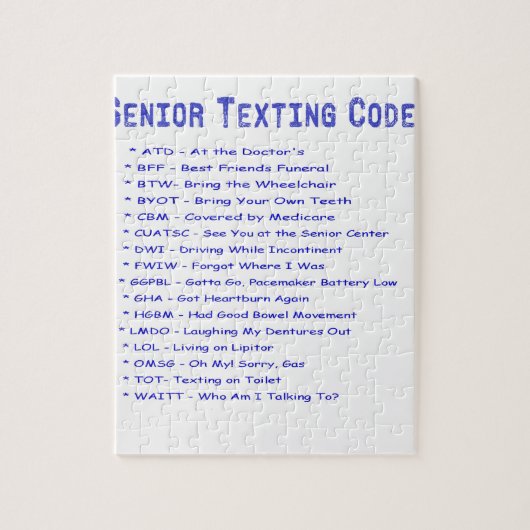 Senior Texting Code
* ATD - At the Doctor's
* BFF - Best Friends Funeral
* BTW- Bring the Wheelchair
* BYOT - Bring Your Own Teeth
* CBM - Covered by Medicare
* CUATSC - See You at the Senior Center
* DWI - Driving While Incontinent
* FWIW - Forgot Where I Was
* GGPBL - Gotta Go, Pacemaker Battery Low
* GHA - Got Heartburn Again
* HGBM - Had Good Bowel Movement
* LMDO - Laughing My Dentures Out
* LOL - Living on Lipitor
* OMSG - Oh My! Sorry, Gas
* TOT- Texting on Toilet
* WAITT - Who Am I Talking To?